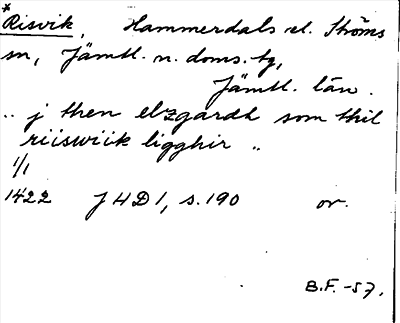 *
Risvik, Hammerdals el. Ströms
sn, Jämtl. n. doms. tg,
Jämtl. län.
.. j then elzgardh som thil
riiswiik ligghir ..
1/1
1422 JHD1, s. 190 or.
B.F. -57.